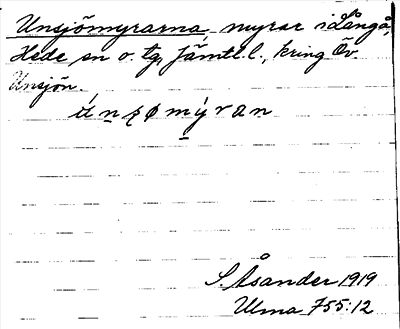 Unsjömyrarna, myrar i Långå,
Hede sn o. tg, Jämtl. l., kring Öv.
Unsjön.
S. Åsander 1919
Ulma 755:12